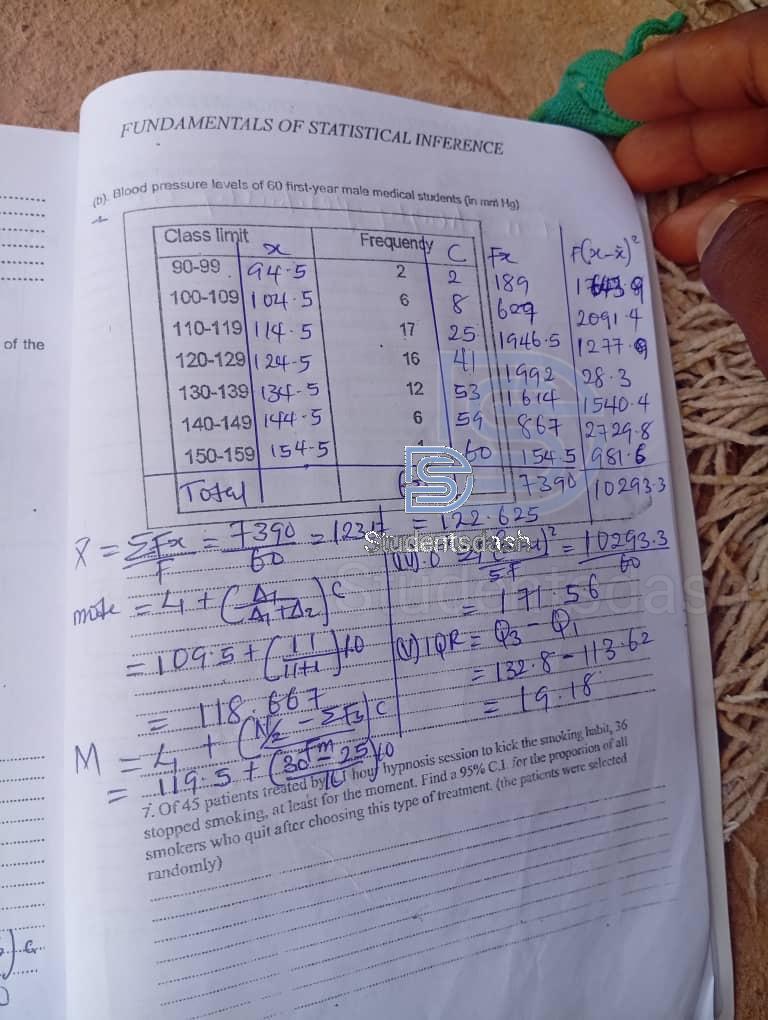 FUNDAMENTALS OF STATISTICAL INFERENCE
(b). Blood pressure levels of 60 first-year male medical students (in mm Hg)
Class limit x Frequency C Fx F(x-x̄)²
90-99 94.5 2 2 189
100-109 104.5 6 8 2091.4
110-119 114.5 17 25 1946.5 1277.9
120-129 124.5 16 41 1992 28.3
130-139 134.5 12 53 1614 1540.4
140-149 144.5 6 59 867 2729.8
150-159 154.5 1 60 154.5 981.6
Total 7390 10293.3
x̄ = ΣFx/F = 7390/60 = 123.17
= 122.625
mode = L1 + (Δ1/(Δ1+Δ2))C
= 10293.3/60
= 171.56
= 109.5 + (11/(11+1))10
(V) IQR = Q3 - Q1
= 132.8 - 113.62
= 118.667
= 19.18
M = L1 + (N/2 - ΣFb/Fm)C
= 119.5 + (30 - 25/16)10
7. Of 45 patients treated by 1 hour hypnosis session to kick the smoking habit, 36
stopped smoking, at least for the moment. Find a 95% C.I. for the proportion of all
smokers who quit after choosing this type of treatment. (the patients were selected
randomly)
of the
Studentsdash
Studentsdas